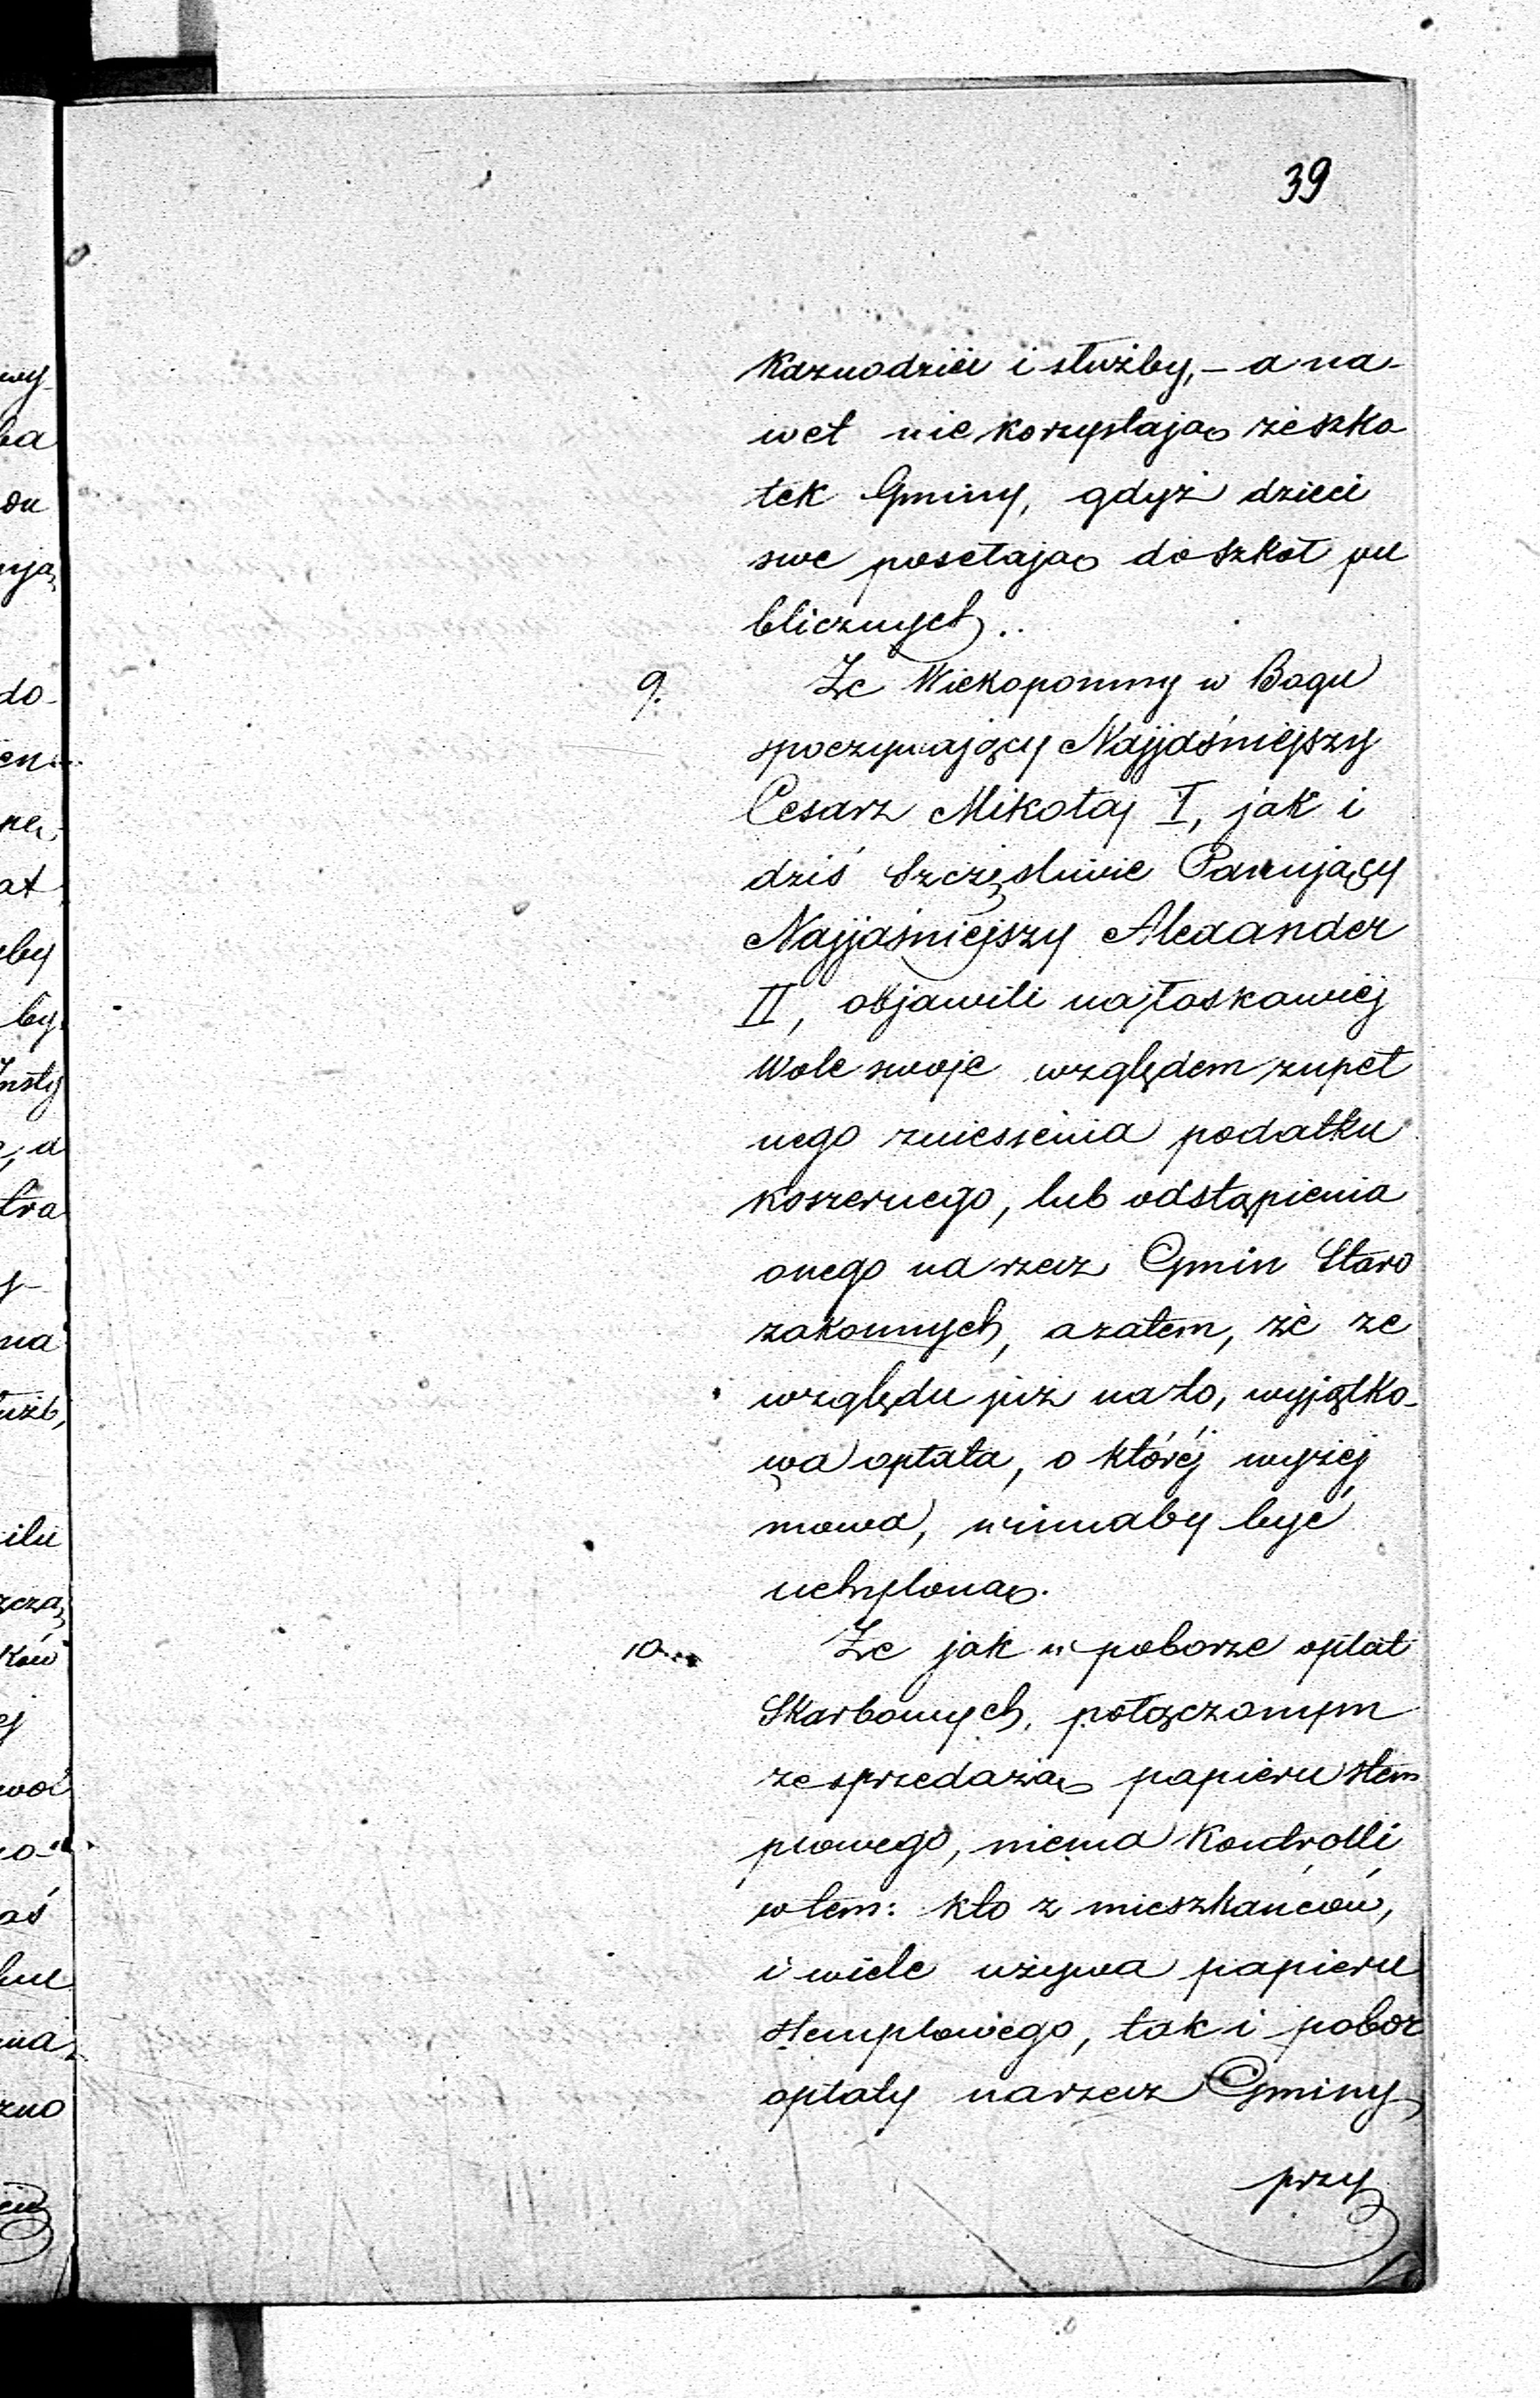 39
kaznodziei i służby, – a na-
wet nie korzystają ze szko
łek Gminy, gdyż dzieci
swe posełają do szkół pu
blicznych..
9. Że Wiekopomny w Bogu
spoczywający Najjaśniejszy
Cesarz Mikołaj I, jak i
dziś Szczęśliwie Panujący
Najjaśniejszy Alexander
II, objawili najłaskawiéj
Wole swoje względem zupeł
nego zniesienia podatku
koszernego, lub odstąpienia
onego na rzecz Gmin Staro
zakonnych, a zatem, że ze
względu już na to, wyjątko-
wa opłata, o któréj wyżej
mowa, winnaby być
uchyloną.
10. Że jak w poborze opłat
Skarbowych, połączonym
ze sprzedażą papieru stem
plowego, niema kontrolli
w tem: kto z mieszkańców,
i wiele używa papieru
stemplowego, tak i pobór
opłaty na rzecz Gminy
przy